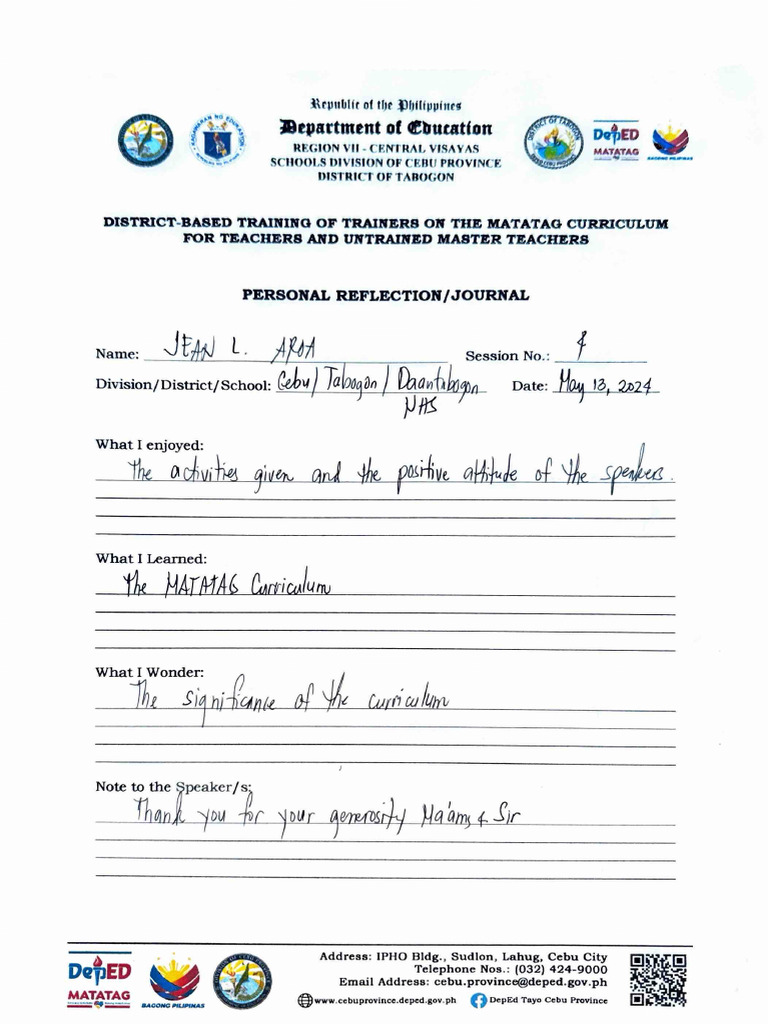 Republic of the Philippines
Department of Education
REGION VII - CENTRAL VISAYAS
SCHOOLS DIVISION OF CEBU PROVINCE
DISTRICT OF TABOGON
DepED
MATATAG
BAGONG PILIPINAS
DISTRICT-BASED TRAINING OF TRAINERS ON THE MATATAG CURRICULUM
FOR TEACHERS AND UNTRAINED MASTER TEACHERS
PERSONAL REFLECTION/JOURNAL
Name: JEAN L. AROA Session No.:
Division/District/School: Cebu/Tabogon/Daantabogon Date: May 13, 2024
NHS
What I enjoyed:
The activities given and the positive attitude of the speakers.
What I Learned:
The MATATAG Curriculum
What I Wonder:
The significance of the curriculum
Note to the Speaker/s:
Thank you for your generosity Ma'ams & Sir
DepED
MATATAG
BAGONG PILIPINAS
Address: IPHO Bldg., Sudlon, Lahug, Cebu City
Telephone Nos.: (032) 424-9000
Email Address: cebu.province@deped.gov.ph
www.cebuprovince.deped.gov.ph DepEd Tayo Cebu Province